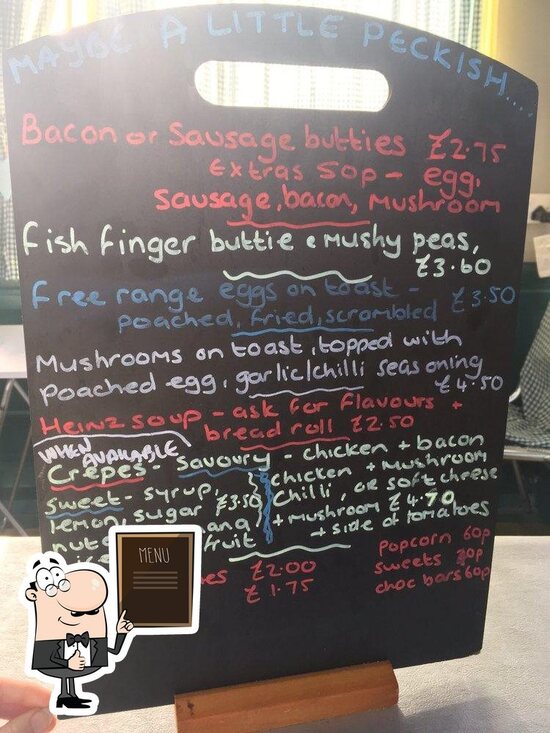 MAYBE A LITTLE PECKISH....
Bacon or Sausage butties £2.75
Extras 50p - egg,
Sausage, bacon, Mushroom
Fish finger buttie & Mushy peas,
£3.60
Free range eggs on toast - £3.50
poached, fried, scrambled
Mushrooms on toast, topped with
poached egg, garlic/chilli seasoning
£4.50
Heinz soup - ask for flavours +
bread roll £2.50
WHEN AVAILABLE
Crêpes - savoury - chicken + bacon
chicken + mushroom
sweet - syrup, £3.50 chilli, or soft cheese
lemon, sugar + mushroom £4.70
+ side of tomatoes
fruit
£2.00
£1.75
popcorn 60p
sweets
choc bars 60p
MENU